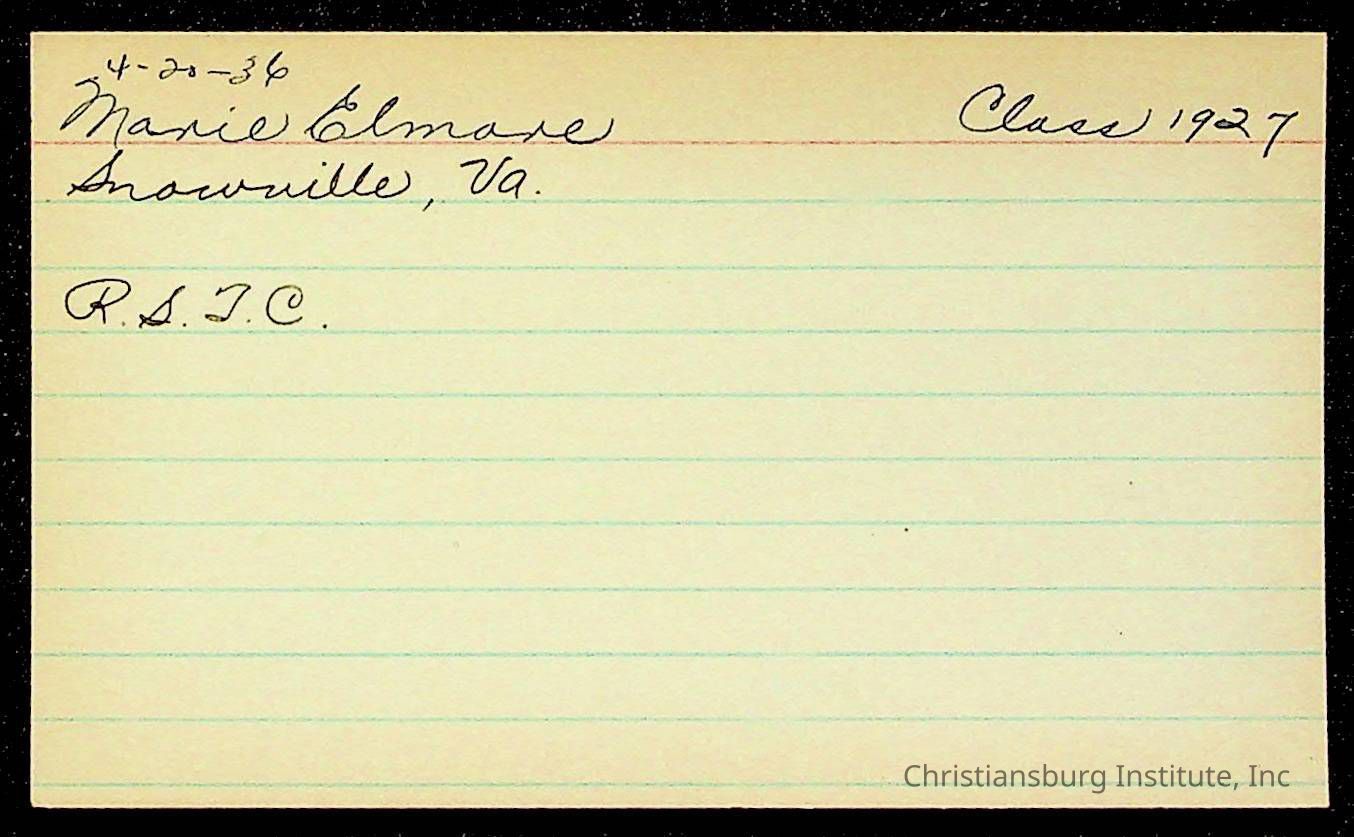 4-20-36
Marie Elmore Class 1927
Snowville, Va.
R.S.T.C.
Christiansburg Institute, Inc